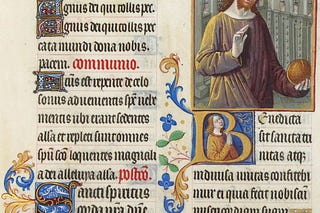 Agnus dei qui tollis pec
Agnus dei qui tollis pec
cata mundi dona nobis
pacem. communio.
Factus est repente de celo
sonus aduenientis spūs uehe
mentis ubi erant sedentes
alla et repleti sunt omnes
spū scō loquentes magnali
a dei alleluya alla. postcō.
Sancti spiritus
corda nrā dne
Benedicta
sit sancta tri
nitas atqꝫ
indiuisa unitas confitebi
mur ei quia fecit nobiscū
misericordiam suam